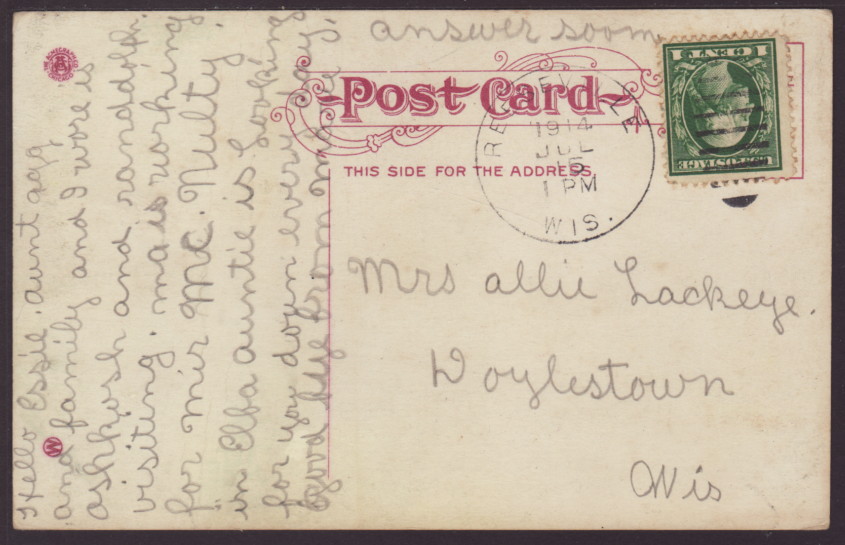 answer soon
Post Card
THIS SIDE FOR THE ADDRESS
REESEVILLE
1914
JUL
15
1 PM
WIS.
1 CENT 1
U.S. POSTAGE
Mrs allie Lackeye.
Doylestown
Wis
Hello Essie. aunt agg
and family and I wore is
oshkosh and randolph.
visiting. ma is working
for mir Mc. Nulty.
in Elba auntie is Looking
for you down every day.
good bye from mable
W